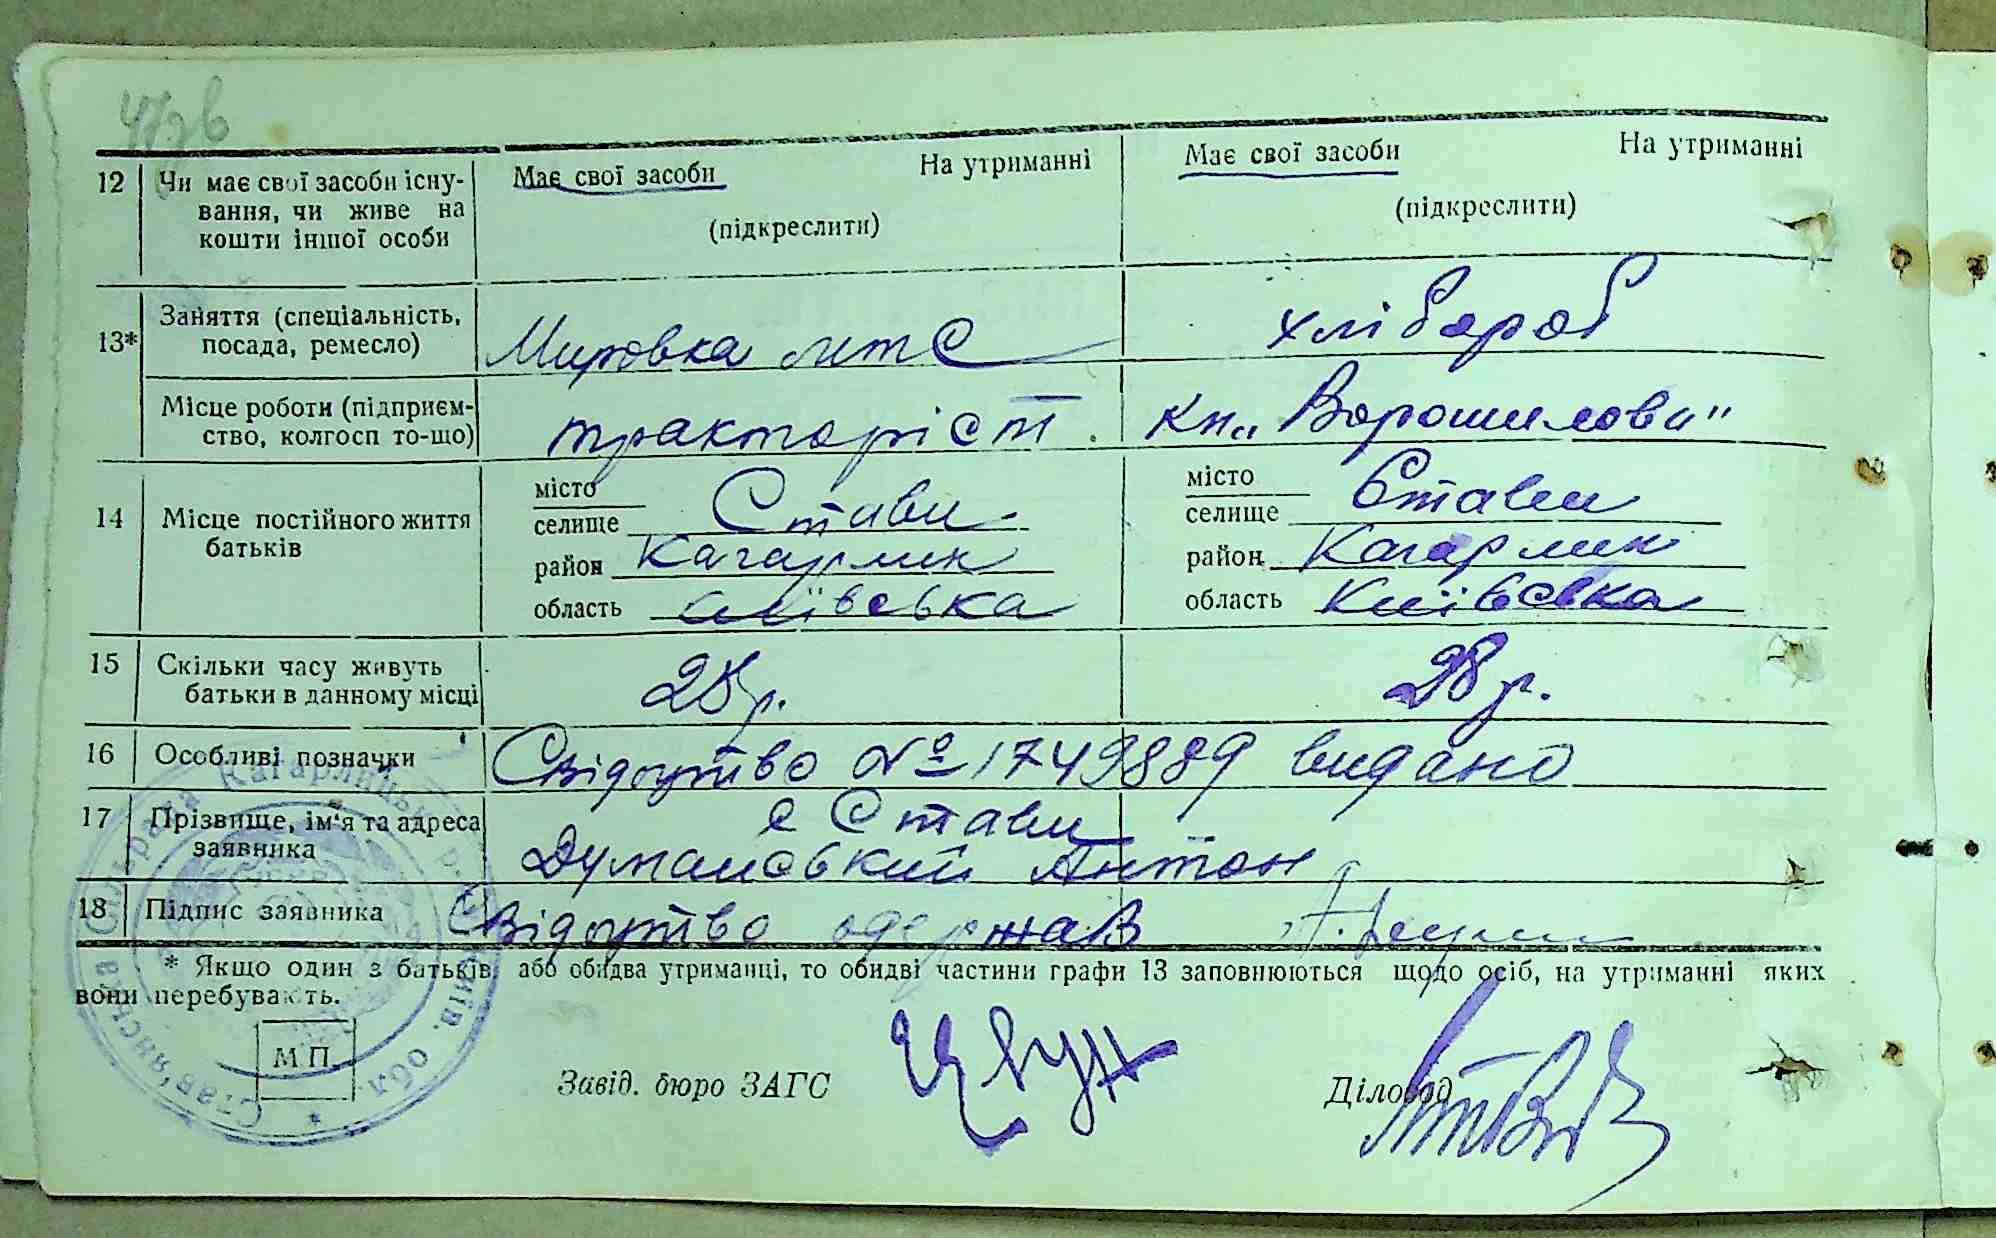 12 Чи має свої засоби існу- Має свої засоби На утриманні Має свої засоби На утриманні
вання, чи живе на (підкреслити) (підкреслити)
кошти іншої особи
13* Заняття (спеціальність, Мировка мтс хлібороб
посада, ремесло)
Місце роботи (підприєм- тракторіст. Кп „Ворошилова"
ство, колгосп то-що)
14 Місце постійного життя місто місто
батьків селище Стави селище Стави
район Кагарлик район Кагарлик
область Київська область Київська
15 Скільки часу живуть 28 р. 28 р.
батьки в данному місці
16 Особливі позначки Свідоцтво № 1749889 видано
17 Прізвище, ім'я та адреса с Стави
заявника Думанський Антон
18 Підпис заявника Свідоцтво одержав
* Якщо один з батьків, або обидва утриманці, то обидві частини графи 13 заповнюються щодо осіб, на утриманні яких
вони перебувають.
М П
Завід. бюро ЗАГС Діловод
Став'янська Сільрада Кагарлицьк. р. Київ. обл.